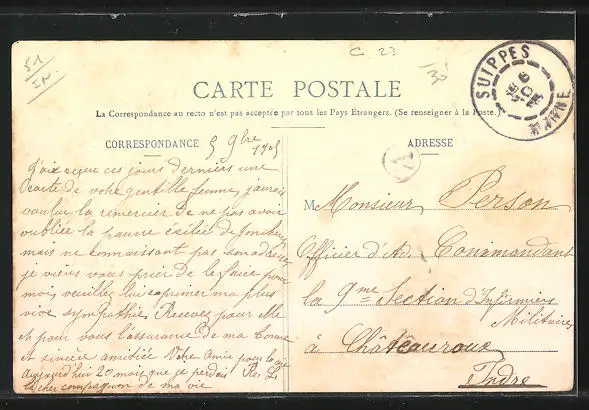 51
IN.
C. 23
30
SUIPPES
MARNE
6
CARTE POSTALE
La Correspondance au recto n'est pas acceptée par tous les Pays Étrangers. (Se renseigner à la Poste.)
CORRESPONDANCE
5 9bre
1905
J'ai reçue ces jours derniers une
carte de votre gentille femme, j'aurais
voulue la remercier de ne pas avoir
oubliée la pauvre exilée de Jonchery
mais ne connaissant pas son adresse
je viens vous prier de le faire pour
moi, veuillez lui exprimer ma plus
vive sympathie, Recevez pour Elle
et pour vous l'assurance de ma bonne
et sincère amitiée Votre Amie pour la vie
Aujourd'hui 20 mois que je perdais
le cher compagnon de ma vie
ADRESSE
A
M Monsieur Person
Officier d'Ad. Commandant
la 9me Section d'Infirmiers
Militaires
à Châteauroux
Indre